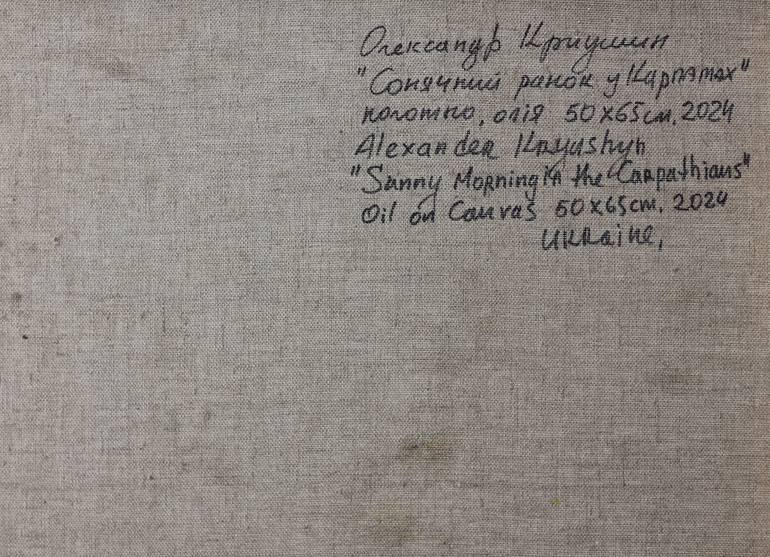 Олександр Криушин
"Сонячний ранок у Карпатах"
полотно, олія 50х65см, 2024
Alexander Kryushyn
"Sunny Morning in the Carpathians"
Oil on Canvas 50x65cm. 2024
Ukraine,